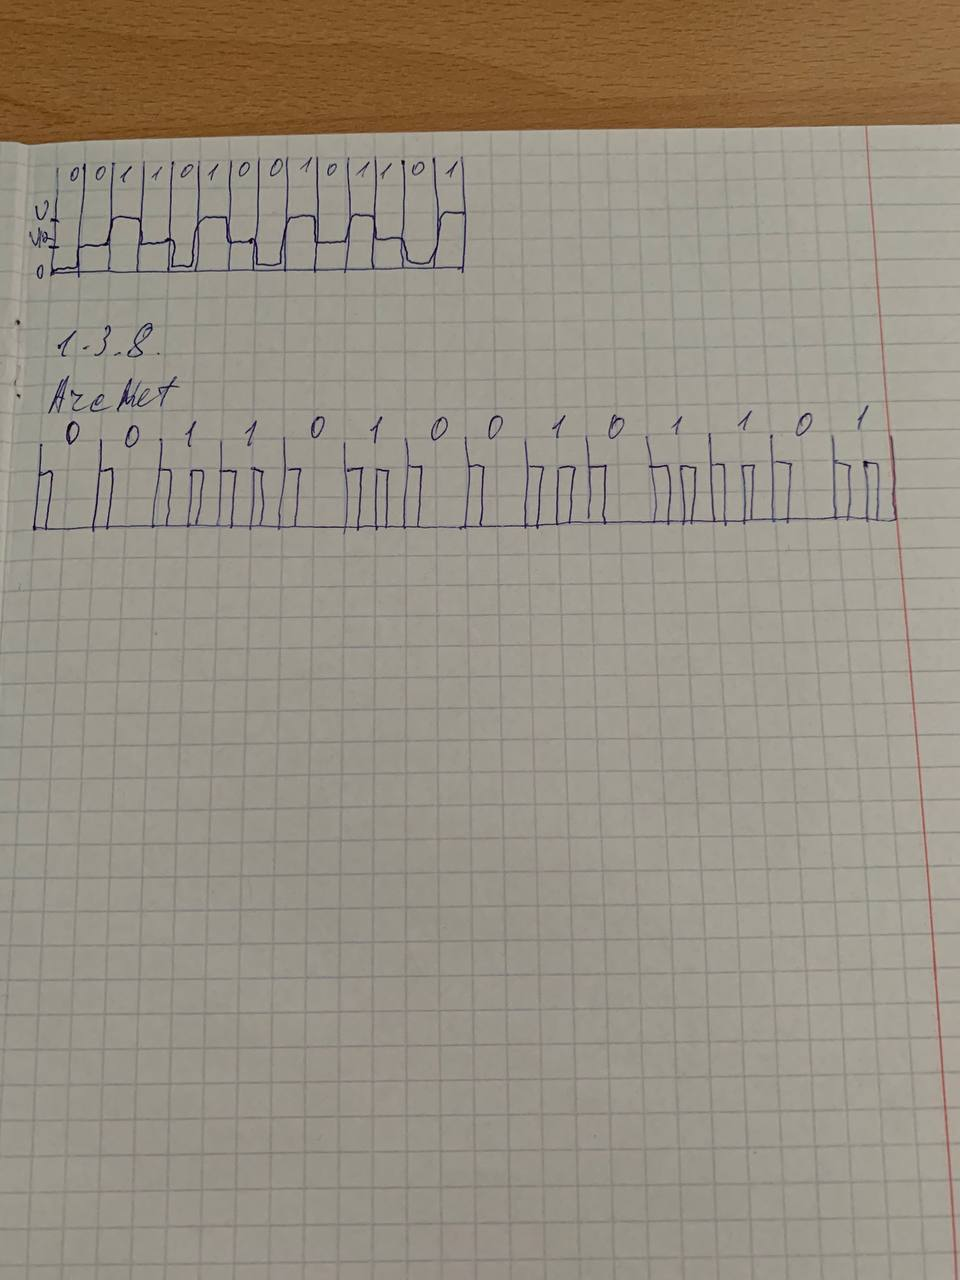 0 0 1 1 0 1 0 0 1 0 1 1 0 1
U
U/2
0
1.3.8.
ArcNet
0 0 1 1 0 1 0 0 1 0 1 1 0 1